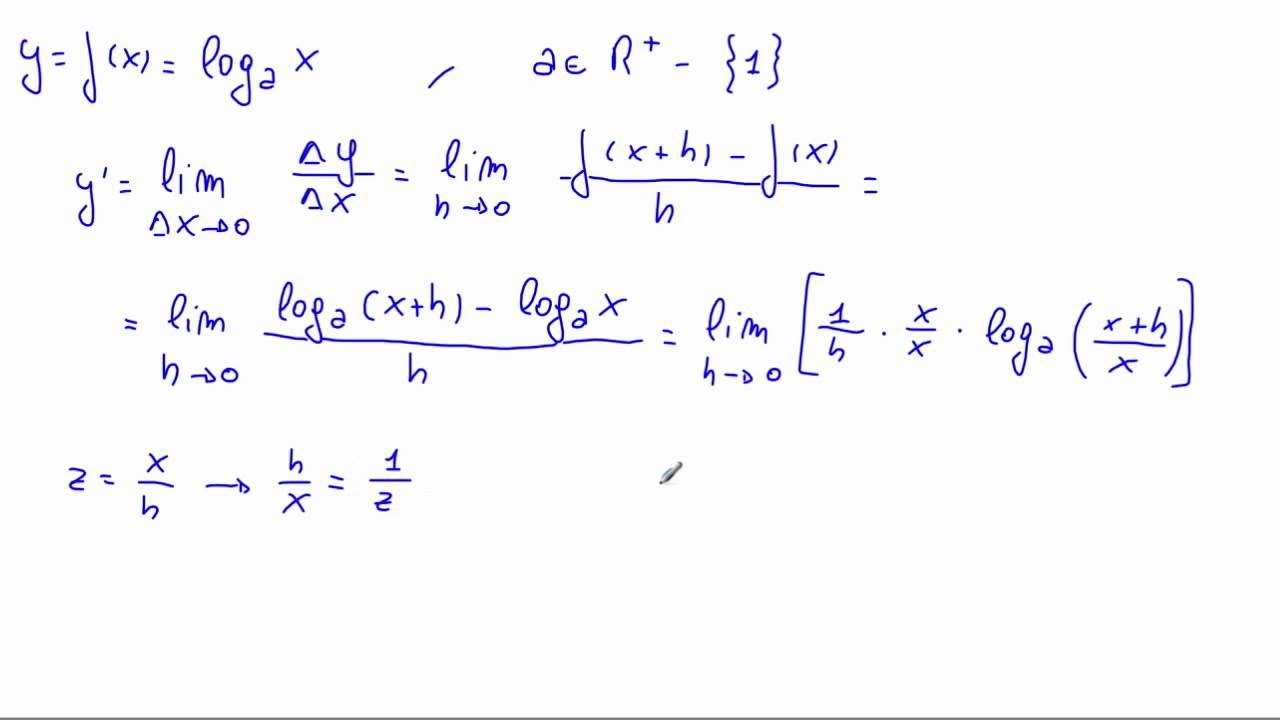 y = f(x) = logₐ x , a ∈ R⁺ - {1}
y' = lim_{Δx→0} Δy/Δx = lim_{h→0} (f(x+h) - f(x))/h =
= lim_{h→0} (logₐ(x+h) - logₐ x)/h = lim_{h→0} [1/h · x/x · logₐ((x+h)/x)]
z = x/h → h/x = 1/z